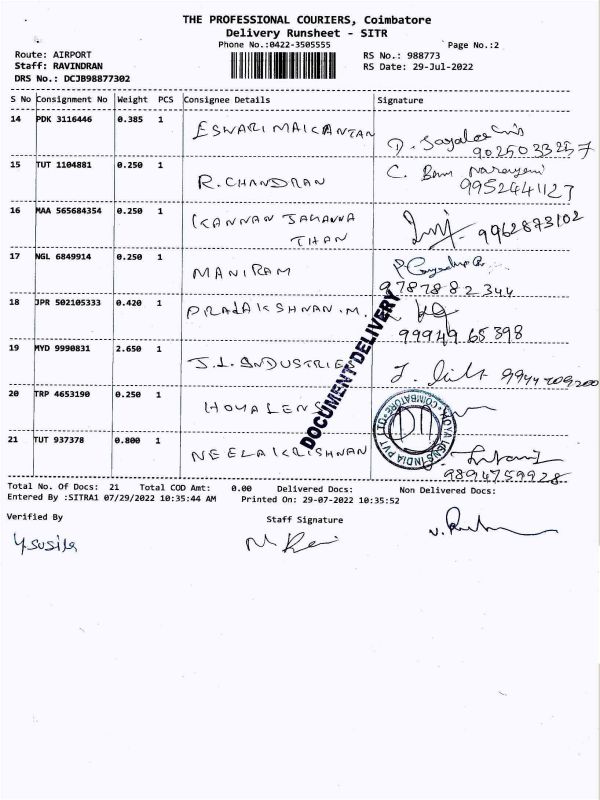 THE PROFESSIONAL COURIERS, Coimbatore
Delivery Runsheet - SITR
Phone No.:0422-3505555
Page No.:2
Route: AIRPORT
RS No.: 988773
Staff: RAVINDRAN
RS Date: 29-Jul-2022
DRS No.: DCJB98877302
S No Consignment No Weight PCS Consignee Details Signature
14 PDK 3116446 0.385 1 ESWARIMAIKANTAN
9025033257
15 TUT 1104881 0.250 1 R. CHANDRAN C.
9952441127
16 MAA 565684354 0.250 1 KANNAN JAGANNA
THAN 9962873102
17 NGL 6849914 0.250 1 MANIRAM
9787882344
18 JPR 502105333 0.420 1
99949 65398
19 MYD 9990831 2.650 1 J.L. INDUSTRIES
20 TRP 4653190 0.250 1 HOYA LENS
21 TUT 937378 0.800 1 NEELAKRISHNAN
9894759928
DOCUMENT DELIVERY
HOYA LENS INDIA PVT. LTD. COIMBATORE
Total No. Of Docs: 21 Total COD Amt: 0.00 Delivered Docs: Non Delivered Docs:
Entered By :SITRA1 07/29/2022 10:35:44 AM Printed On: 29-07-2022 10:35:52
Verified By
Staff Signature
Y. susila